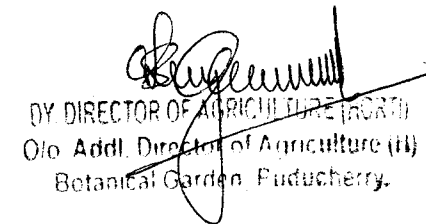 DY. DIRECTOR OF AGRICULTURE (HORTI)
O/o Addl. Director of Agriculture (H)
Botanical Garden, Puducherry.